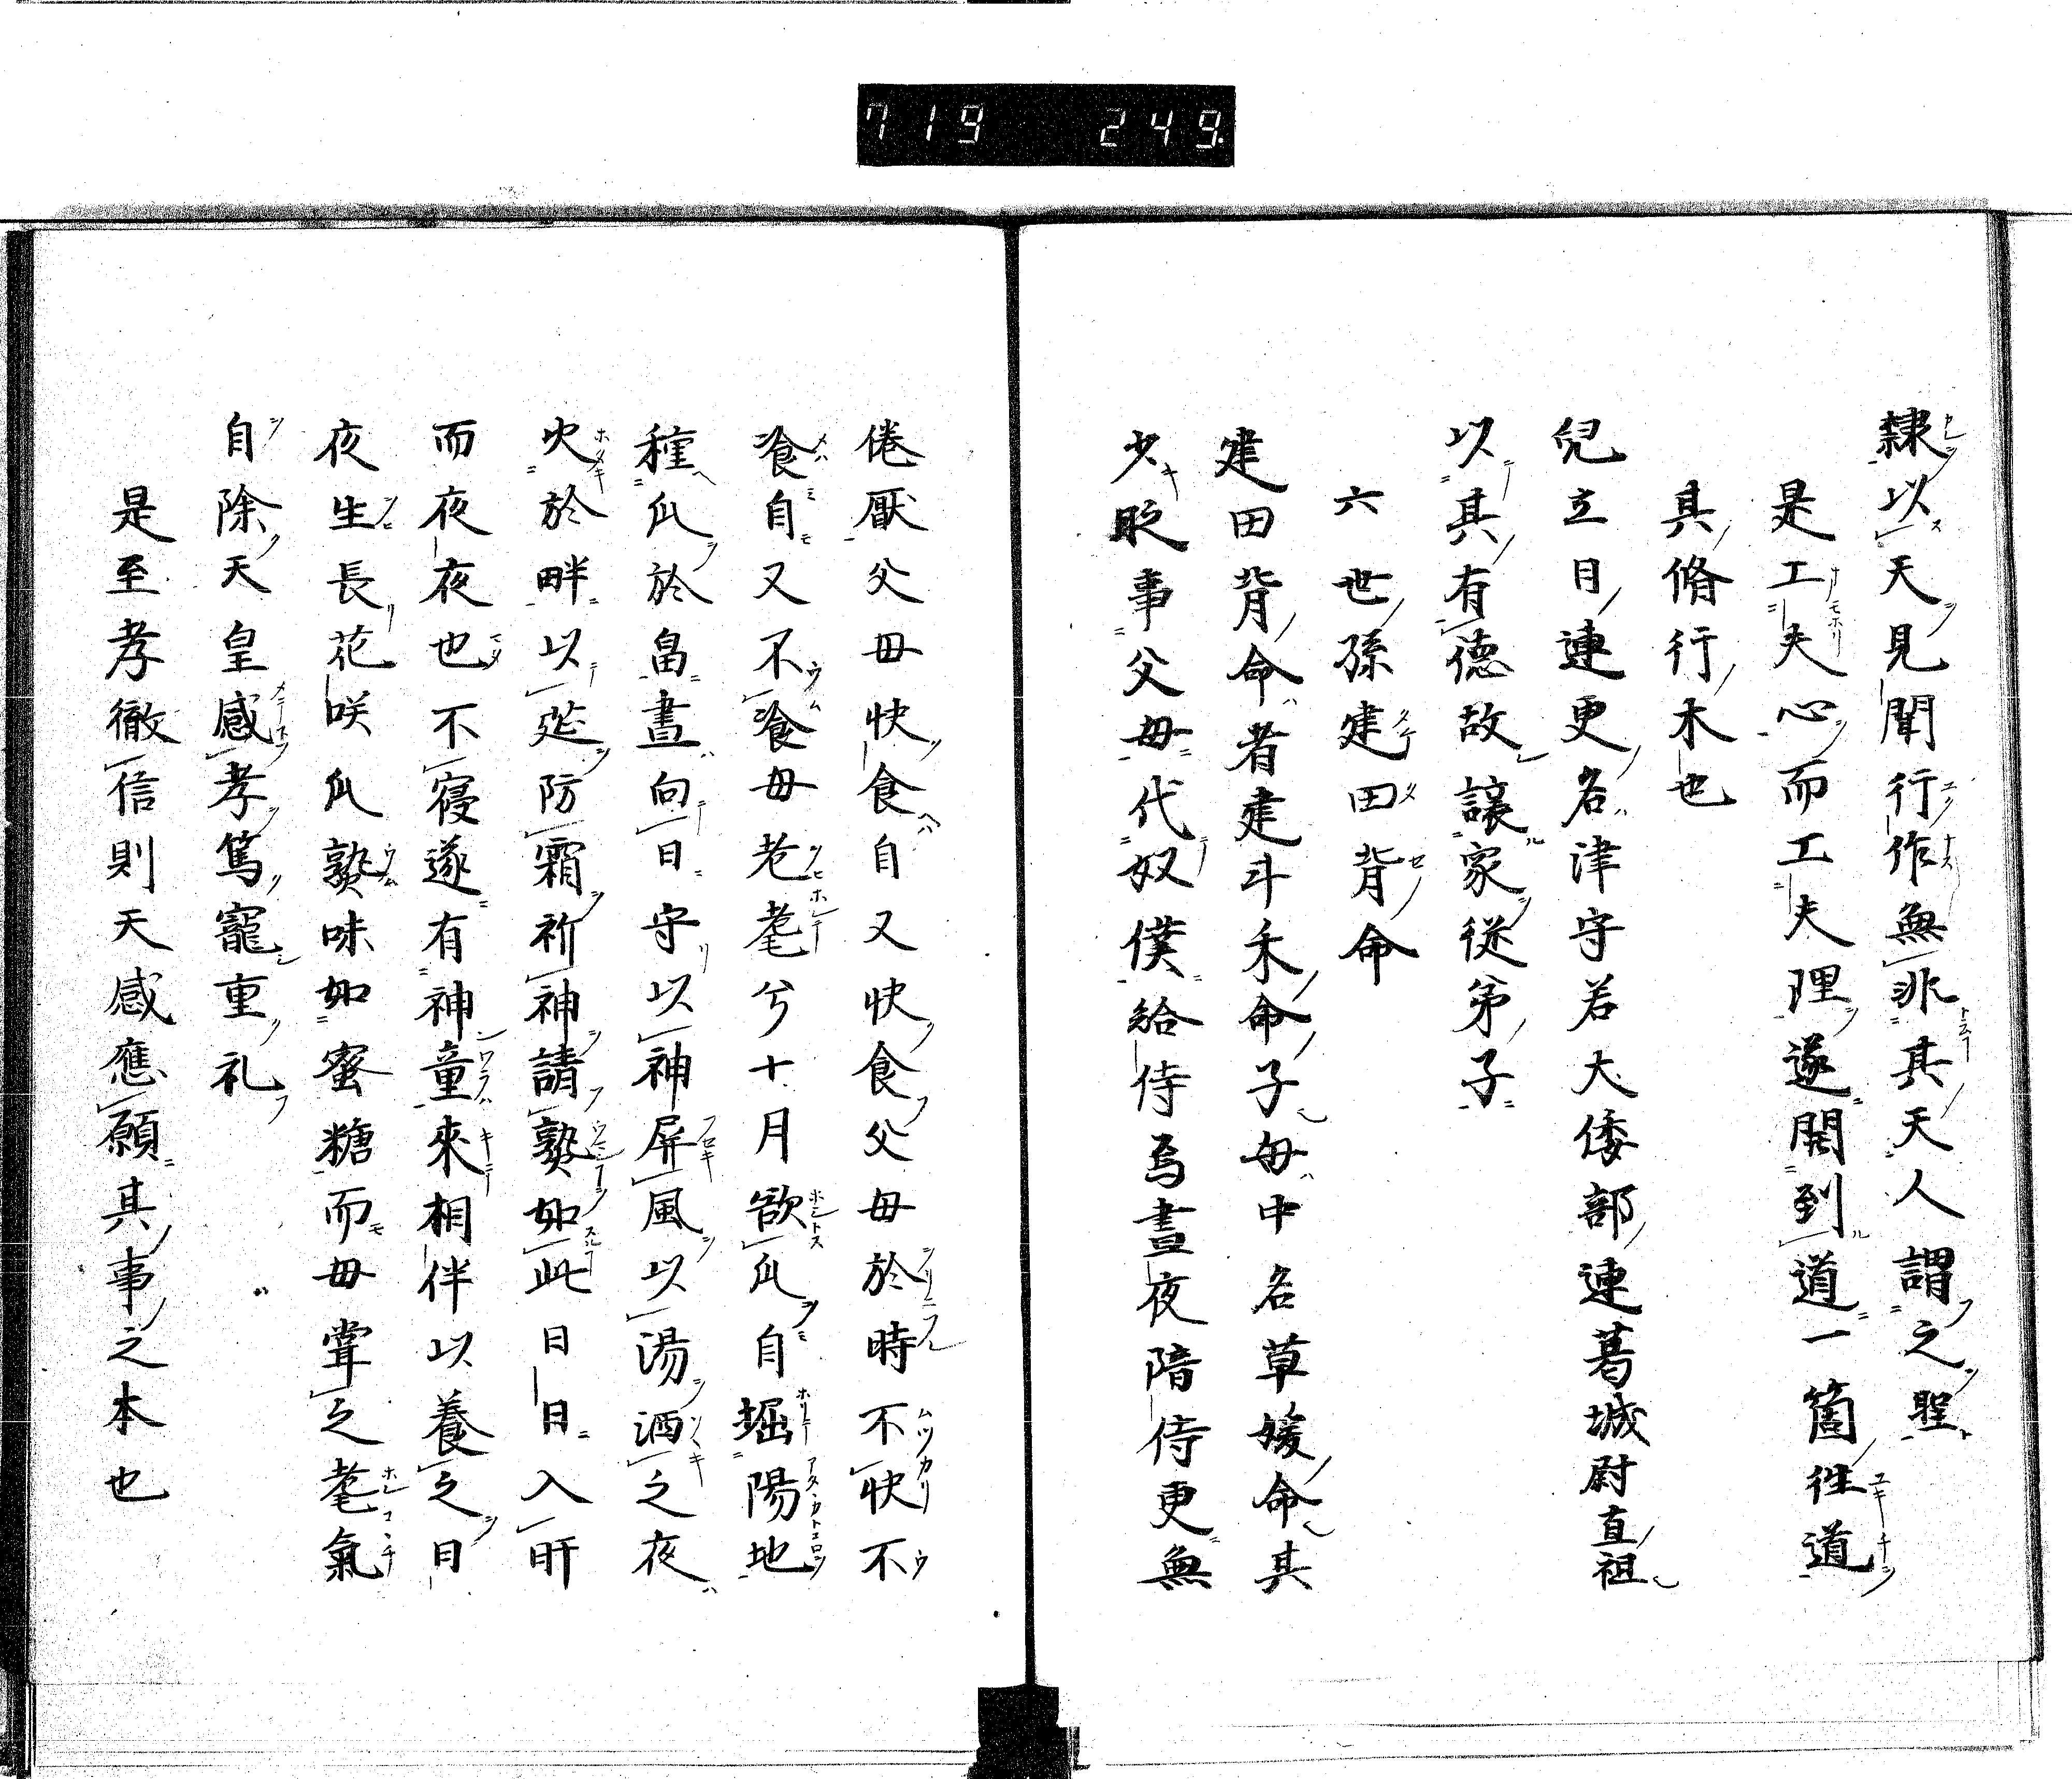 719 249.
隸以天見聞行作無非其天人謂之聖
是工夫心而工夫理遂開到道一箇往道
具脩行木也
兒立日連更名津守若大倭部連葛城尉直祖
以其有德故讓家從弟子
六世孫建田背命
建田背命者建斗禾命子母中名草媛命其
少貶事父母代奴僕給侍爲晝夜隨侍更無
倦厭父母快食自又快食父母於時不快不
飡自又不飡母老耄兮十月欲瓜自堀陽地
種瓜於畠晝向日守以神屏風以湯洒之夜
火於畔以莚防霜祈神請熟如此日日入旰
而夜夜也不寢遂有神童來相伴以養之日
夜生長花咲瓜熟味如蜜糖而母嘗之耄氣
自除天皇感孝篤寵重礼
是至孝徹信則天感應願其事之本也